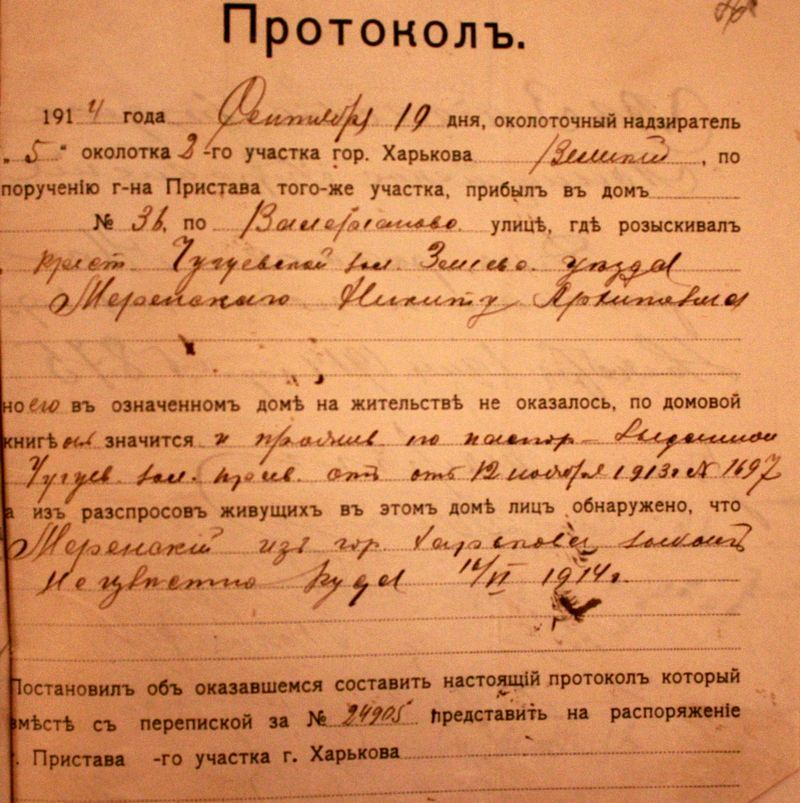 Протоколъ.
1914 года Сентября 19 дня, околоточный надзиратель
„5“ околотка 2-го участка гор. Харькова Великій, по
порученію г-на Пристава того-же участка, прибылъ въ домъ
№ 36, по улицѣ, гдѣ розыскивалъ
крест. Чугуевской вол. Зміево. уѣзда
Меренскаго Никиту Архиповича
но его въ означенномъ домѣ на жительствѣ не оказалось, по домовой
книгѣ онъ значится и прожив по паспор. выданном
Чугуев. вол. прав. отъ 12 ноября 1913 г № 1697
а изъ разспросовъ живущихъ въ этомъ домѣ лицъ обнаружено, что
Меренскій изъ гор. Харькова выбылъ
неизвестно куда 14/VI 1914 г.
Постановилъ объ оказавшемся составить настоящій протоколъ который
вмѣстѣ съ перепиской за № 24905 представить на распоряженіе
г. Пристава -го участка г. Харькова